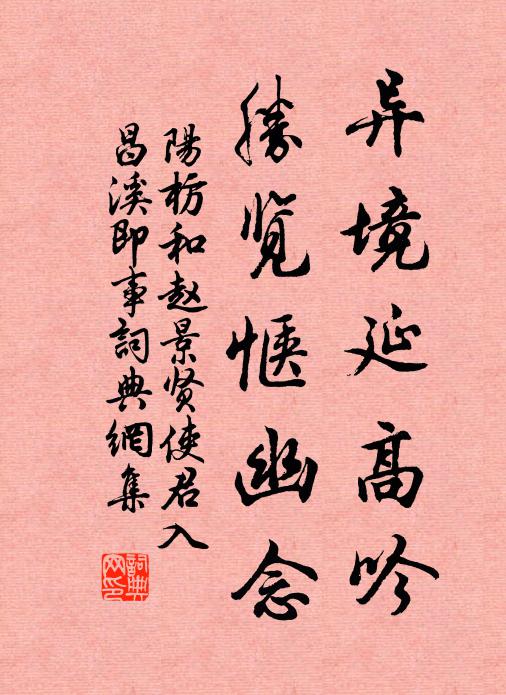 异境延高吟
胜览惬幽念
陽枋和赵景贤使君入
昌溪即事詞典網集
詞典網印